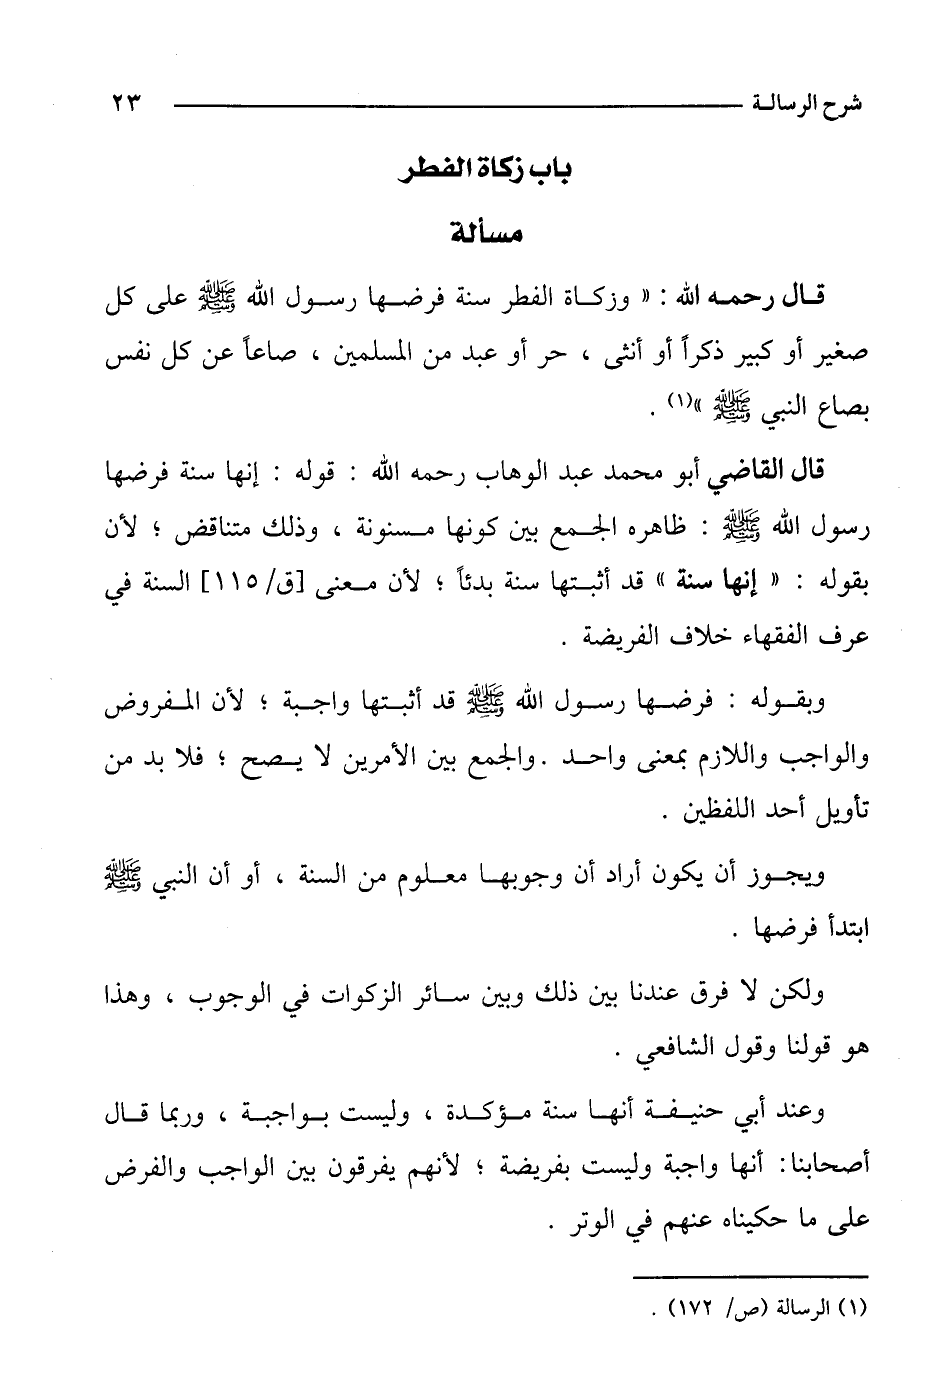 شرح الرسالة ٢٣
باب زكاة الفطر
مسألة
قال رحمه الله : « وزكاة الفطر سنة فرضها رسول الله ﷺ على كل
صغير أو كبير ذكراً أو أنثى ، حر أو عبد من المسلمين ، صاعاً عن كل نفس
بصاع النبي ﷺ »(١) .
قال القاضي أبو محمد عبد الوهاب رحمه الله : قوله : إنها سنة فرضها
رسول الله ﷺ : ظاهره الجمع بين كونها مسنونة ، وذلك متناقض ؛ لأن
بقوله : « إنها سنة » قد أثبتها سنة بدئاً ؛ لأن معنى [ق/ ١١٥] السنة في
عرف الفقهاء خلاف الفريضة .
وبقوله : فرضها رسول الله ﷺ قد أثبتها واجبة ؛ لأن المفروض
والواجب واللازم بمعنى واحد .والجمع بين الأمرين لا يصح ؛ فلا بد من
تأويل أحد اللفظين .
ويجوز أن يكون أراد أن وجوبها معلوم من السنة ، أو أن النبي ﷺ
ابتدأ فرضها .
ولكن لا فرق عندنا بين ذلك وبين سائر الزكوات في الوجوب ، وهذا
هو قولنا وقول الشافعي .
وعند أبي حنيفة أنها سنة مؤكدة ، وليست بواجبة ، وربما قال
أصحابنا: أنها واجبة وليست بفريضة ؛ لأنهم يفرقون بين الواجب والفرض
على ما حكيناه عنهم في الوتر .
(١) الرسالة (ص/ ١٧٢) .